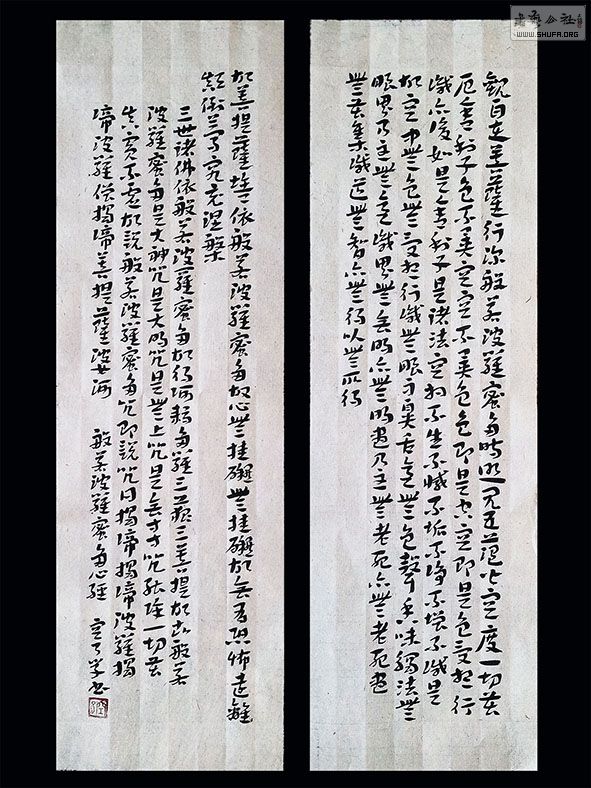 書法公社
WWW.SHUFA.ORG
觀自在菩薩行深般若波羅蜜多時照見五蘊皆空度一切苦
厄舍利子色不異空空不異色色即是空空即是色受想行
識亦復如是舍利子是諸法空相不生不滅不垢不淨不增不減是
故空中無色無受想行識無眼耳鼻舌意無色聲香味觸法無
眼界乃至無意識界無無明亦無明盡乃至無老死亦無老死盡
無苦集滅道無智亦無得以無所得
故菩提薩埵依般若波羅蜜多故心無掛礙無掛礙故無有恐怖遠離
顛倒夢究竟涅槃
三世諸佛依般若波羅蜜多故得阿耨多羅三藐三菩提故知般若
波羅蜜多是大神咒是大明咒是無上咒是無等等咒能除一切苦
真實不虛故說般若波羅蜜多咒即說咒曰揭諦揭諦波羅揭
諦波羅僧揭諦菩提薩婆訶 般若波羅蜜多心經